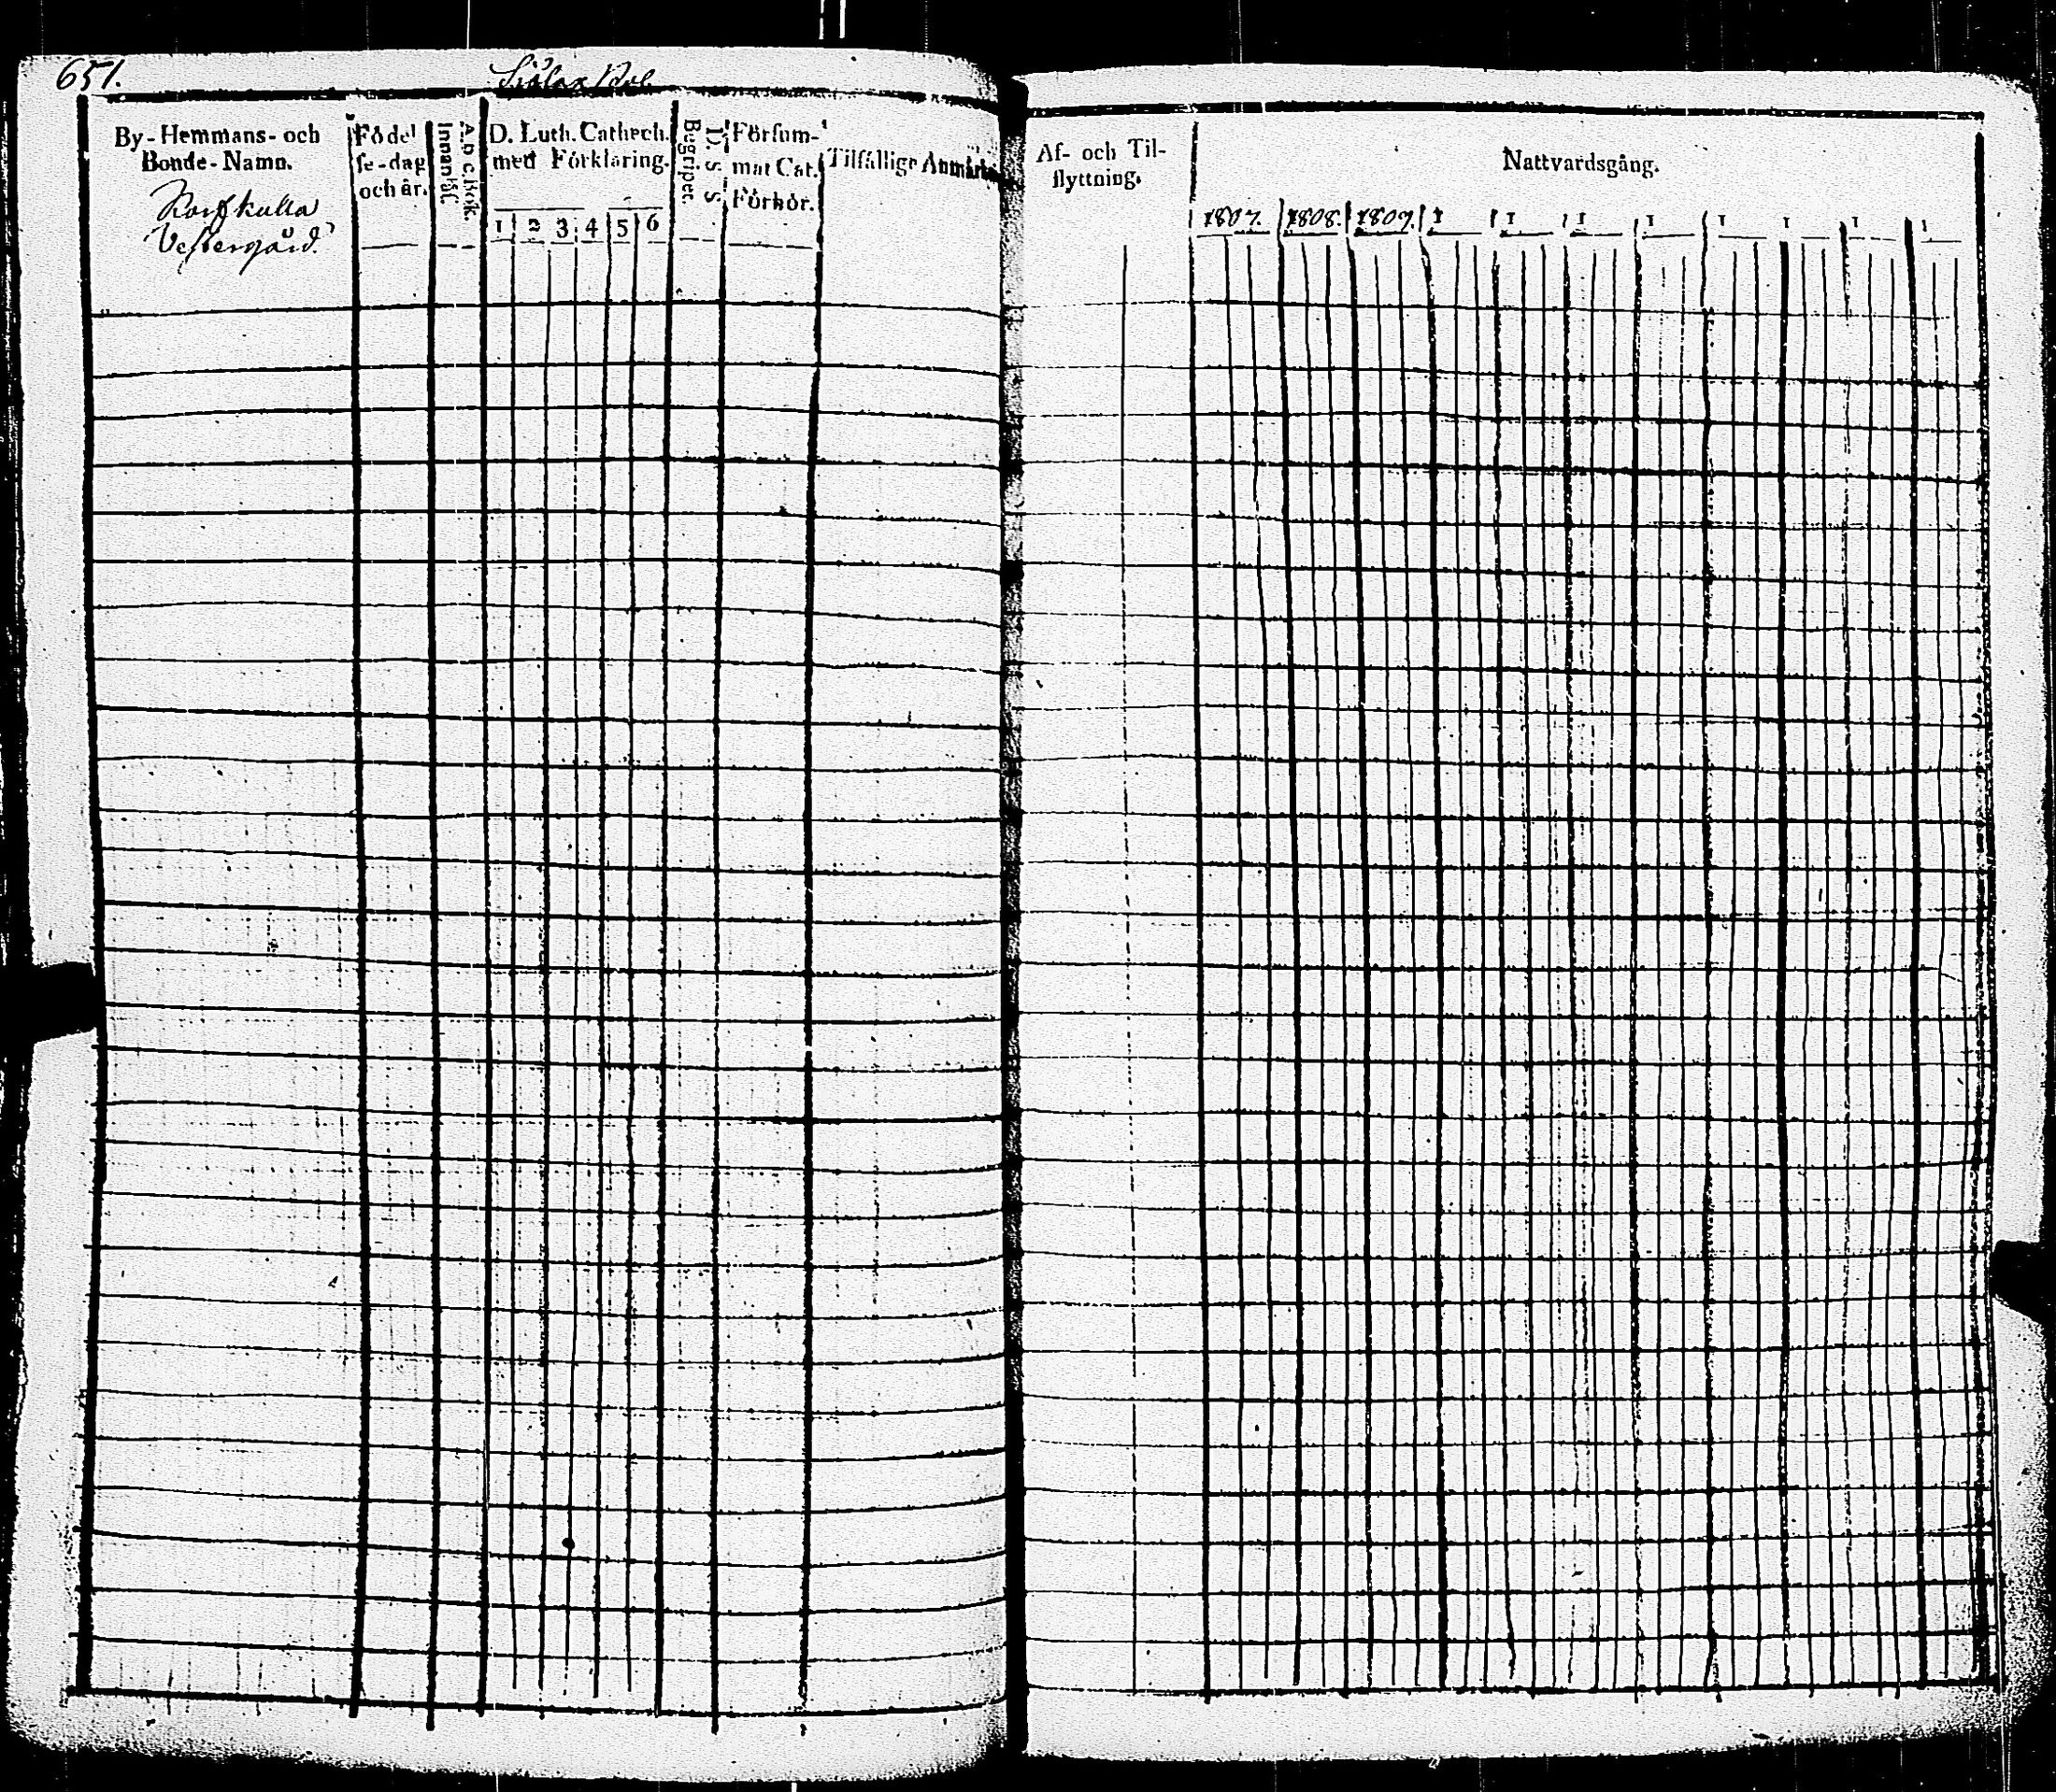 651.
Sjölax Rote
By-Hemmans- och
Bonde-Namn.
Korskulla
Vestergård.
Födel
se-dag
och år.
A. b c. Bok.
Innanläs.
D. Luth. Cathech.
med Förklaring.
1 2 3 4 5 6
D. S. S.
Begriper.
Försum-
mat Cat.
Förhör.
Tilfällige Anmärk
Af- och Til-
flyttning.
Nattvardsgång.
1807. 1808. 1809. 1 1 1 1 1 1 1 1